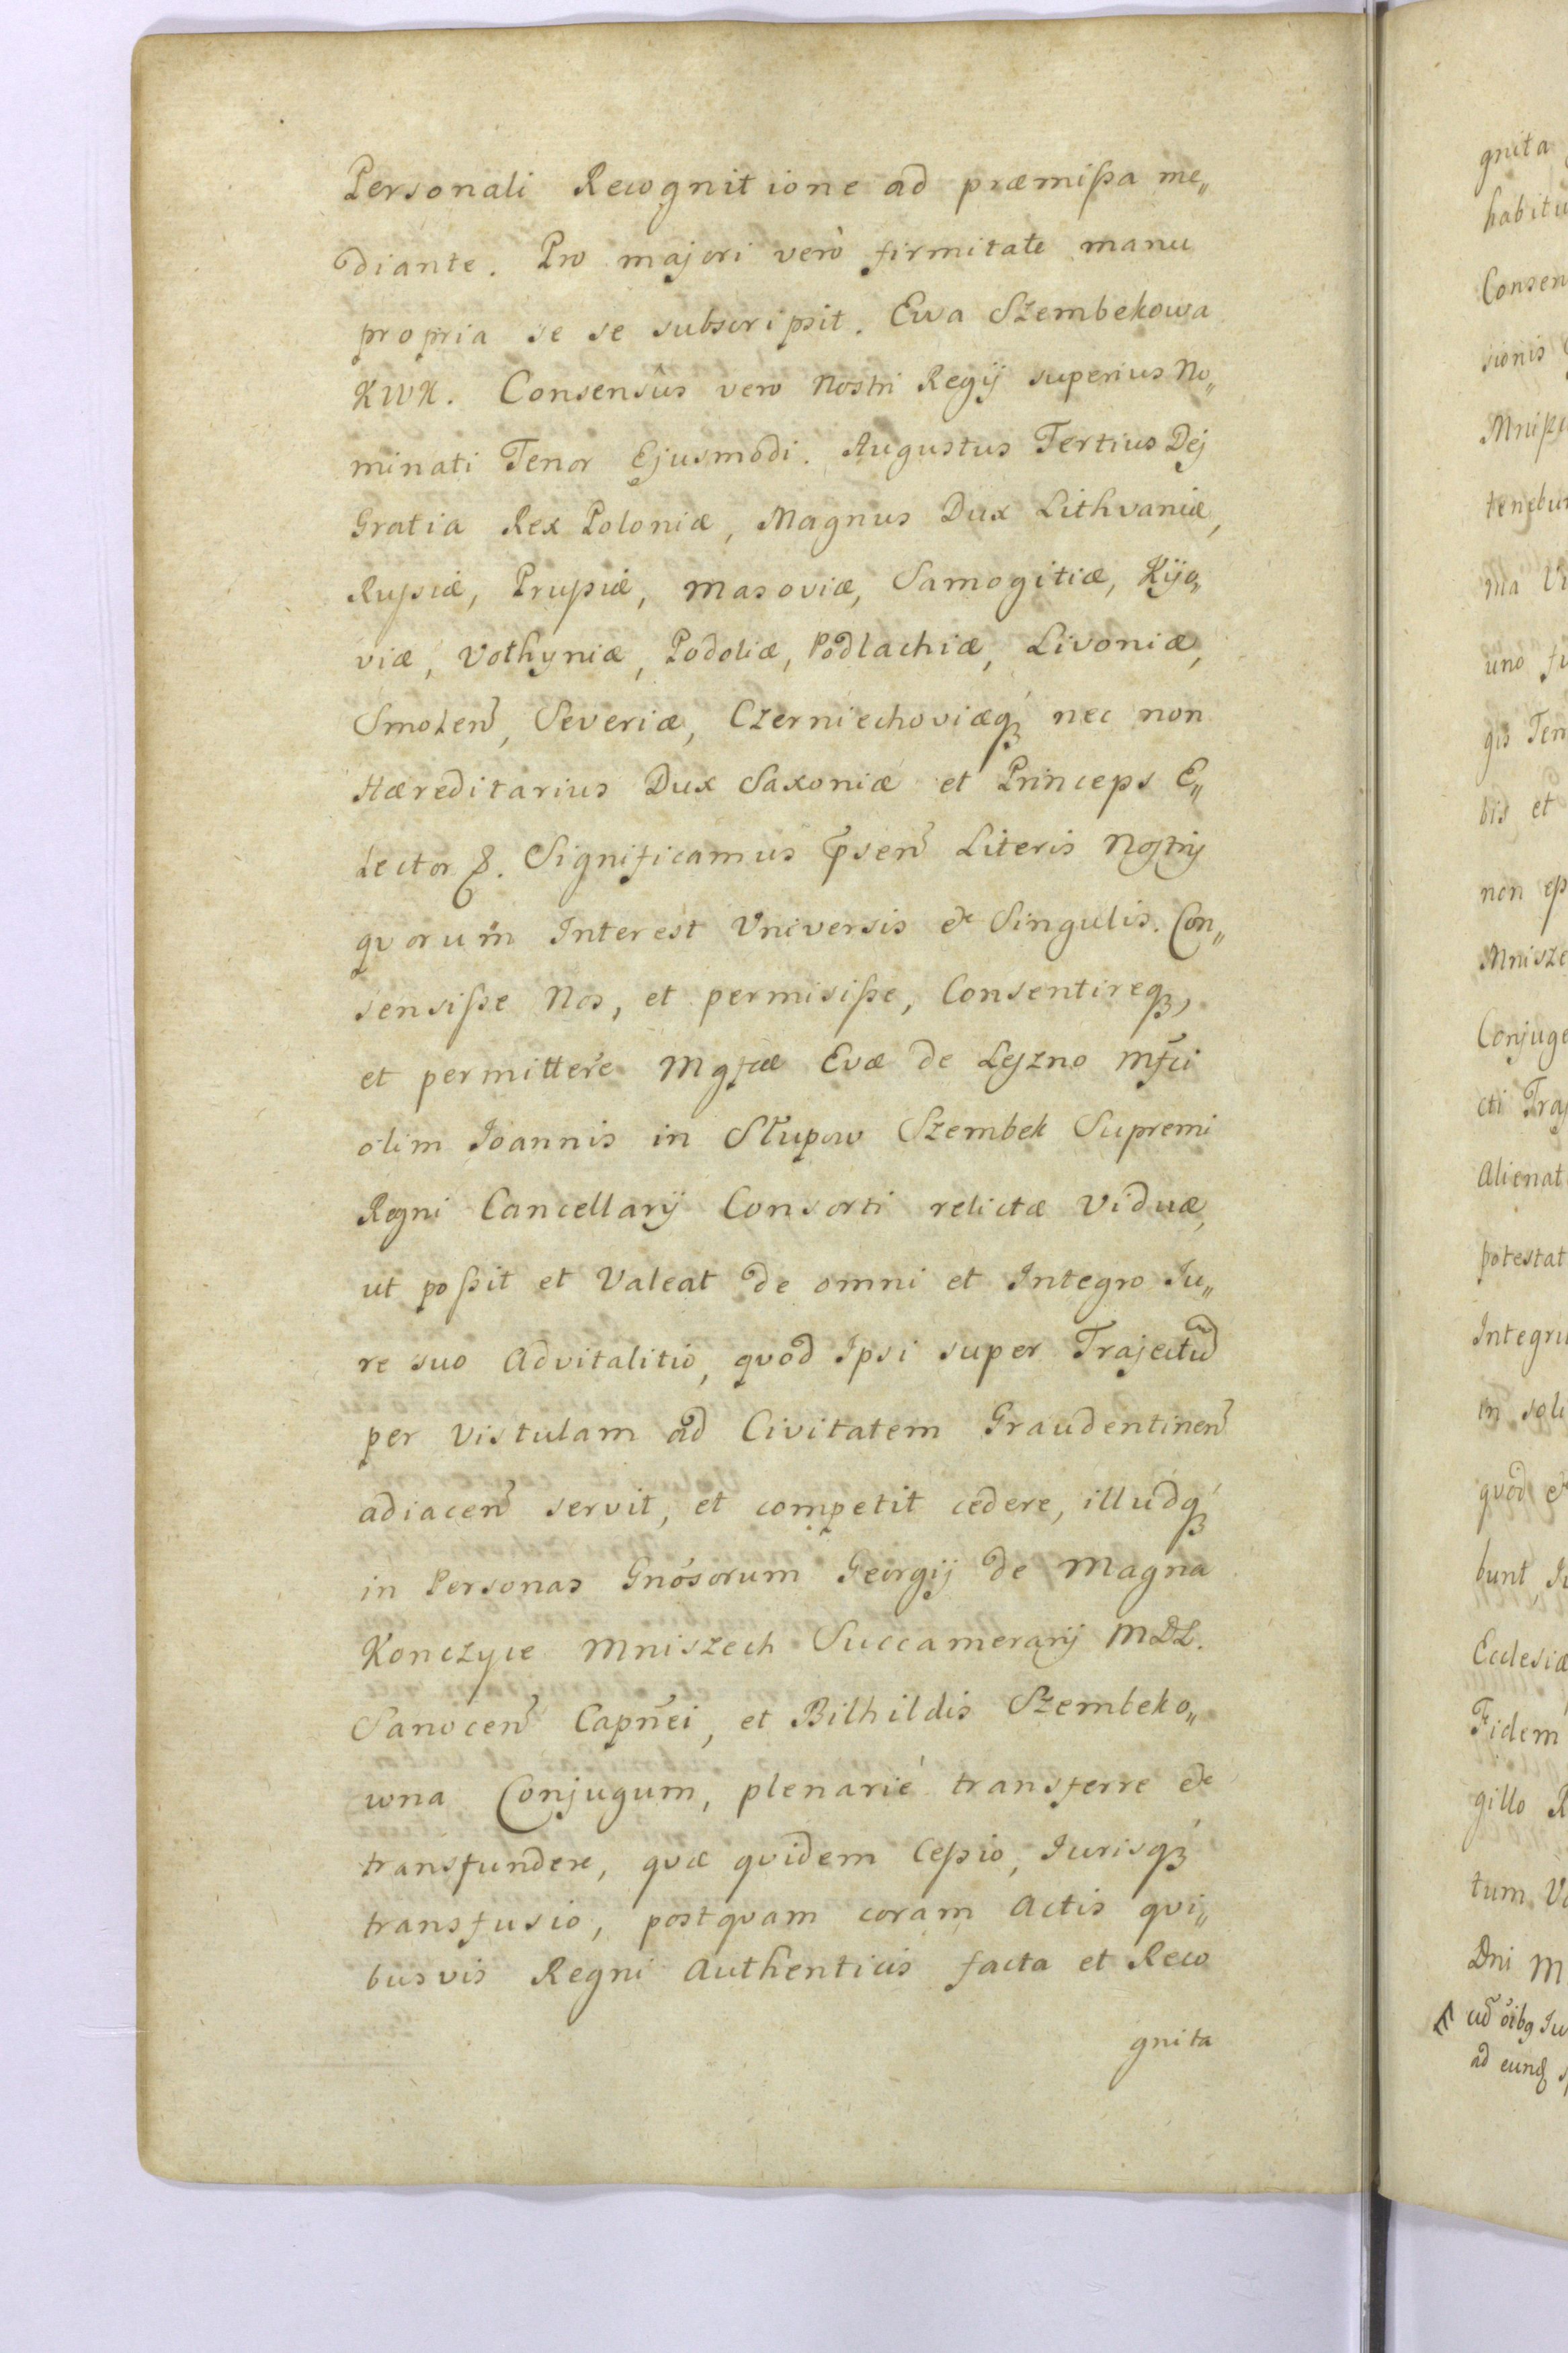 Personali Recognitione ad præmißa me„
diante. Pro majori verò firmitate manu
propria se se subscripsit. Ewa Szembekowa
KWK. Consensûs vero Nostri Regij superius No„
minati Tenor Ejusmodi. Augustus Tertius Dej
Gratia Rex Poloniæ, Magnus Dux Lithvaniæ,
Rußiæ, Prußiæ, Masoviæ, Samogitiæ, Kijo„
viæ, Volhyniæ, Podoliæ, Podlachiæ, Livoniæ,
Smolen̄, Severiæ, Czerniechoviæq́ꝫ nec non
Hæreditarius Dux Saxoniæ et Princeps E„
lector &. Significamus p̄sen̄ Literis Nostrij
quorum Interest Universis & Singulis. Con„
sensiße Nos, et permisiße, Consentireqꝫ,
et permittere Mgfcæ Evæ de Leszno Mf̄ci
olim Joannis in Słupow Szembek Supremi
Regni Cancellarij Consorti relictæ Viduæ,
ut poßit et Valeat de omni et Integro Ju„
re suo Advitalitio, quod Ipsi super Trajectu͠
per Vistulam ad Civitatem Graudentinen̄
adiacen̄ servit, et competit cedere, illudq́ꝫ
in Personas Gnōsorum Georgij de Magna
Konczyce Mniszech Succamerarij MDL.
Sanocen̄ Capn̄ei, et Bilhildis Szembeko„
wna Conjugum, plenariè transferre &
transfundere, quæ quidem Ceßio, Jurisq́ꝫ
transfusio, postquam coram Actis qui„
busvis Regni Authenticis facta et Reco
gnita
gnita
habitu
Consen
sionis
Mniß
tenebun
ma Vi
uno
gis Ten
bis et
non eß
Mnisze
Conjuge
cti Traj
Alienat
potestat
Integru
in soli
quod &
bunt, Ju
Ecclesiæ
Fidem
gillo R
tum Va
Dni M
cu͠ oi͠bꝫ Ju
ad eund